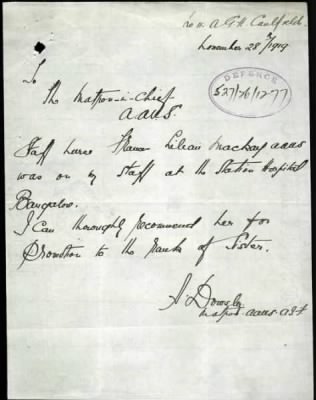 A G H Caulfield
November 28th/1919
DEFENCE
527/26/1277
To
The Matron-in-Chief
A.A.N.S.
Staff Nurse Lilian Mackay AANS
was on my staff at the Station Hospital
Bangalore.
I can thoroughly recommend her for
promotion to the rank of Sister.
A Dowsley
Matron AANS. AIF